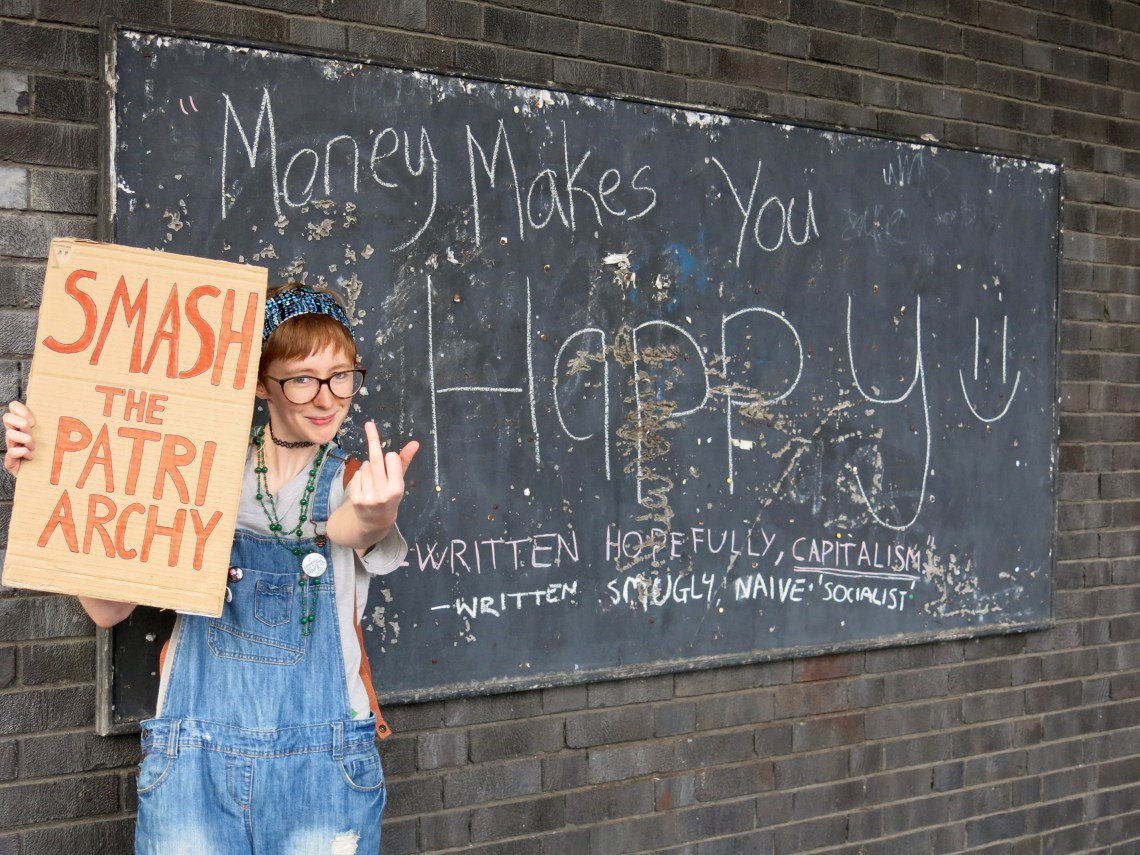 SMASH
THE
PATRI
ARCHY
"Money Makes You
Happy
WRITTEN HOPEFULLY, CAPITALISM"
-WRITTEN SMUGLY, NAIVE 'SOCIALIST'